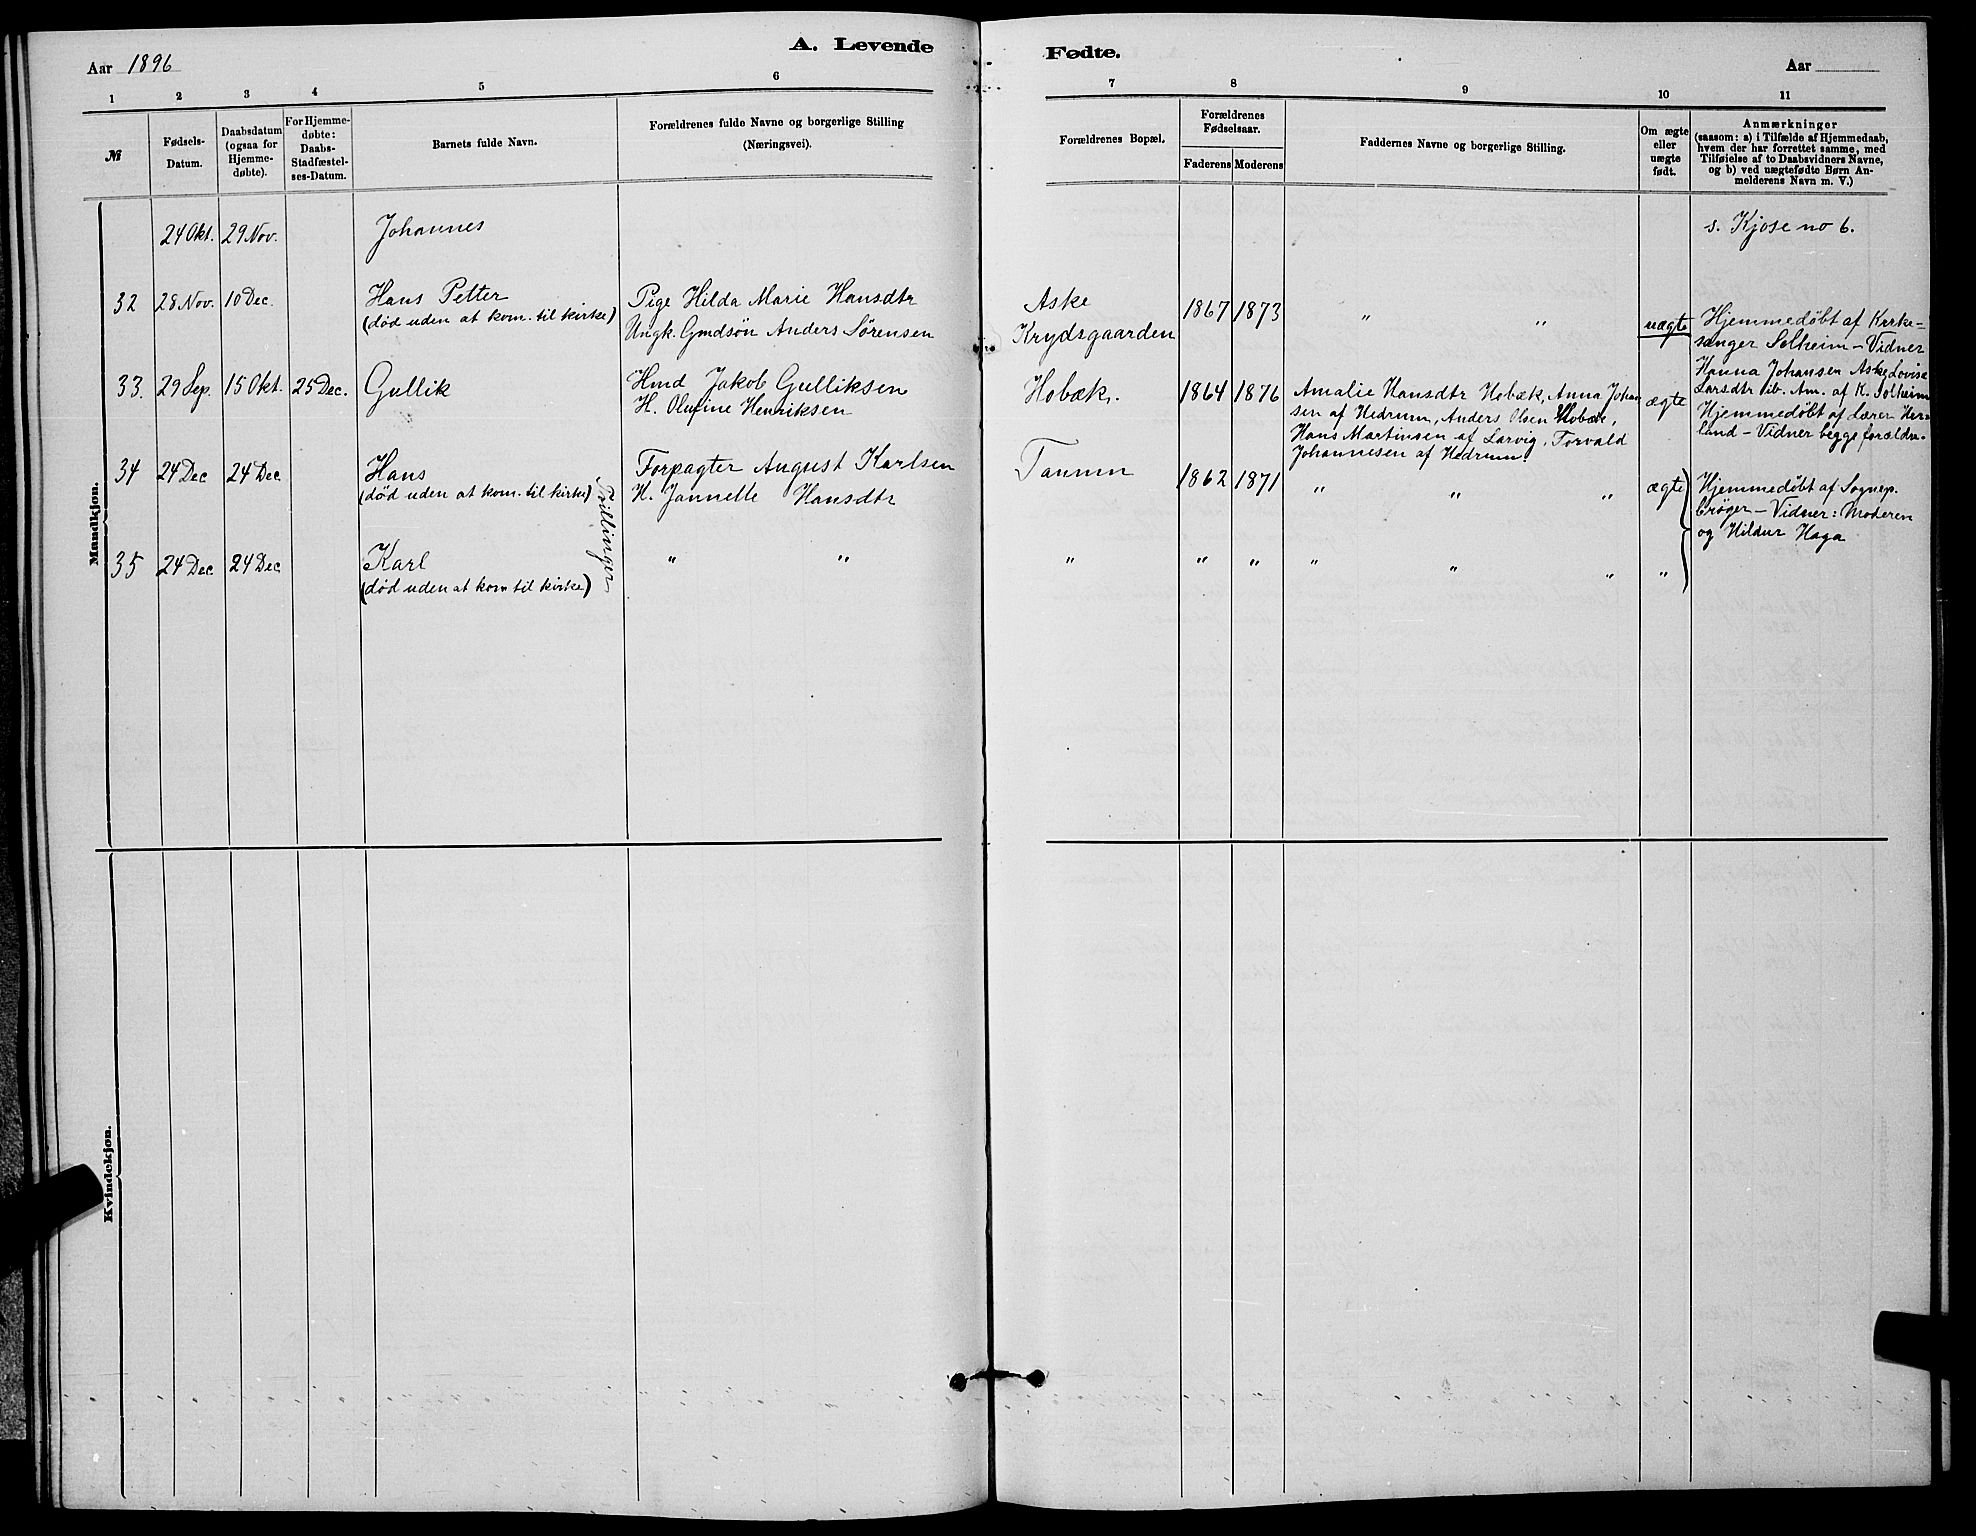 A. Levende
Fødte.
Aar 1896
Aar
1 2 3 4 5 6
7 8 9 10 11
№
Fødsels-
Datum.
Daabsdatum
(ogsaa for
Hjemme-
døbte).
For Hjemme-
døbte:
Daabs-
Stadfæstel-
ses-Datum.
Barnets fulde Navn.
Forældrenes fulde Navne og borgerlige Stilling
(Næringsvei).
Forældrenes Bopæl.
Forældrenes
Fødselsaar.
Faderens Moderens
Faddernes Navne og borgerlige Stilling.
Om ægte
eller
uægte
født.
Anmærkninger
(saasom: a) i Tilfælde af Hjemmedaab,
hvem der har forrettet samme, med
Tilføielse af to Daabsvidners Navne,
og b) ved uægtefødte Børn An-
melderens Navn m. V.)
Mandkjøn.
24 Okt. 29 Nov. Johannes
s. Kjose no 6.
32 28 Nov. 10 Dec. Hans Petter
(død uden at kom. til kirke)
Pige Hilda Marie Hansdtr
Ungk. Gmdsøn Anders Sørensen
Aske
Krydsgaarden
1867 1873 " " uægte
Hjemmedøbt af Kirke-
sanger Solheim – Vidner
Hanna Johansen Aske, Lovise
Larsdtr ib. Am. af K. Solheim
33. 29 Sep. 15 Okt. 25 Dec. Gullik
Hmd Jakob Gulliksen
H. Olufine Henriksen
Hobæk. 1864 1876
Amalie Hansdtr Hobæk, Anna Johan
sen af Hedrum, Anders Olsen Hobæk,
Hans Martinsen af Larvig, Torvald
Johannesen af Hedrum.
ægte
Hjemmedøbt af Lærer Her-
land – Vidner begge forældre.
34 24 Dec 24 Dec Hans
(død uden at kom. til kirke)
Trillinger
Forpagter August Karlsen
H. Jannette Hansdtr
Tanum
1862 1871 " " " ægte
Hjemmedøbt af Sognep.
Crøger – Vidner: Moderen
og Hildur Haga
35 24 Dec 24 Dec Karl
(død uden at kom til kirke)
" " " " " " " " "
Kvindekjøn.